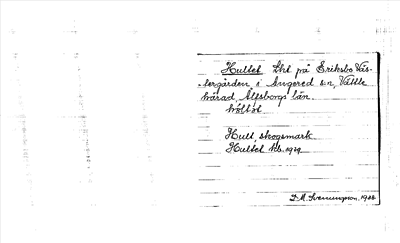 Hultet Lht på Eriksbo Väs-
tergården, i Angered s:n, Vättle
härad, Älfsborgs län.
Hult, skogsmark
Hultet Hb. 1929
D.M. Svenungson, 1928